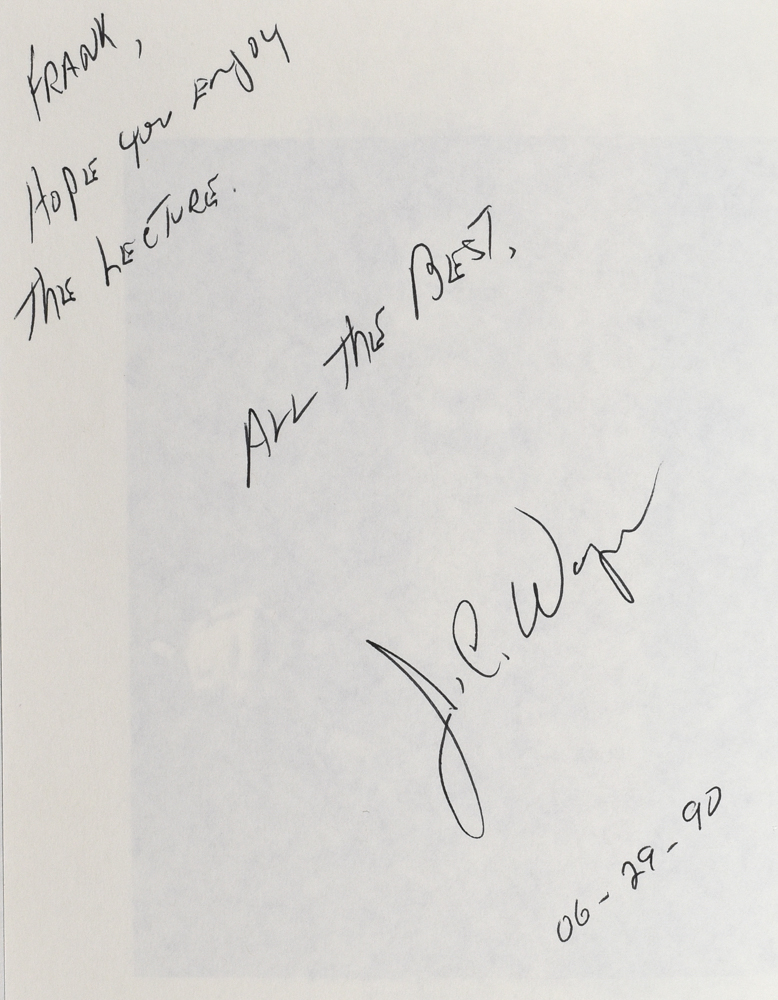 FRANK,
HOPE you Enjoy
The LECTURE.
ALL The BEST,
J. C. Wagner
06-29-90